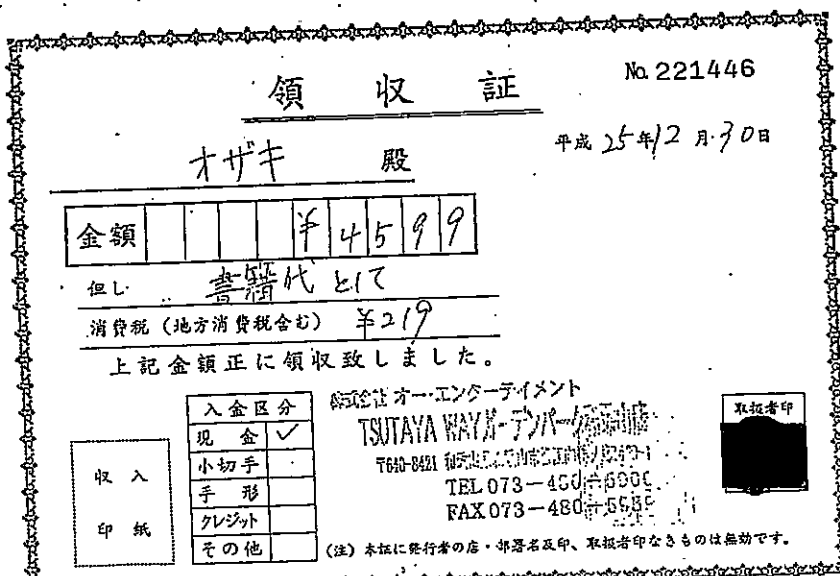 領収証
No. 221446
平成 25年12月30日
オザキ 殿
金額 ¥4599
但し 書籍代として
消費税(地方消費税含む) ¥219
上記金額正に領収致しました。
入金区分
現金 ✓
小切手
手形
クレジット
その他
収入
印紙
株式会社 オー・エンターテイメント
TSUTAYA WAY
〒640-8421
TEL 073-480-
FAX 073-480-
取扱者印
(注) 本証に発行者の店・部署名及印、取扱者印なきものは無効です。